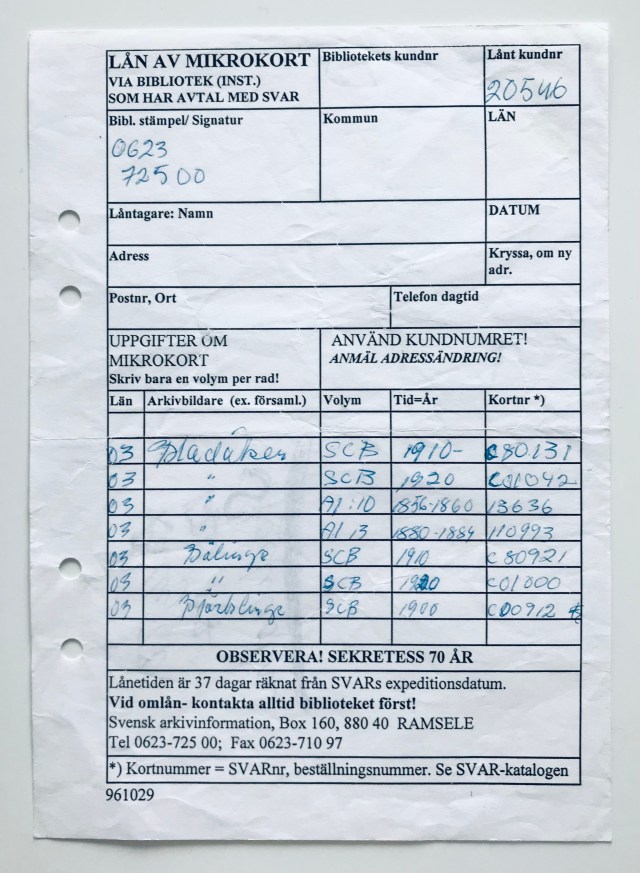 LÅN AV MIKROKORT
VIA BIBLIOTEK (INST.)
SOM HAR AVTAL MED SVAR
Bibliotekets kundnr
Lånt kundnr
20546
Bibl. stämpel/ Signatur
0623
72500
Kommun
LÄN
Låntagare: Namn
DATUM
Adress
Kryssa, om ny
adr.
Postnr, Ort
Telefon dagtid
UPPGIFTER OM
MIKROKORT
Skriv bara en volym per rad!
ANVÄND KUNDNUMRET!
ANMÄL ADRESSÄNDRING!
Län Arkivbildare (ex. församl.) Volym Tid=År Kortnr *)
03 Bladåker SCB 1910- C80131
03 " SCB 1920 C01042
03 " AI:10 1856-1860 13636
03 " AI 13 1880-1884 110993
03 Bälinge SCB 1910 C80921
03 " SCB 1920 C01000
03 Björklinge SCB 1900 C00912
OBSERVERA! SEKRETESS 70 ÅR
Lånetiden är 37 dagar räknat från SVARs expeditionsdatum.
Vid omlån- kontakta alltid biblioteket först!
Svensk arkivinformation, Box 160, 880 40 RAMSELE
Tel 0623-725 00; Fax 0623-710 97
*) Kortnummer = SVARnr, beställningsnummer. Se SVAR-katalogen
961029